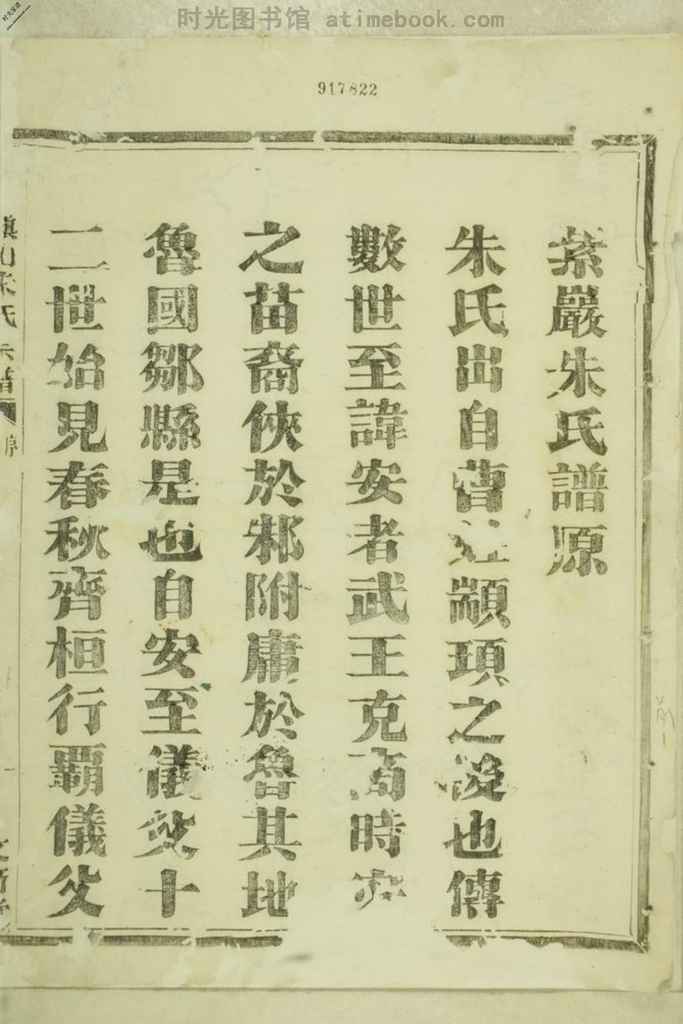 时光图书馆 atimebook.com
917822
紫嚴朱氏譜原
朱氏出自曹顓頊之後也傳
數世至諱安者武王克商時
之苗裔俠於邾附庸於魯其地
魯國鄒縣是也自安至儀父十
二世始見春秋齊桓行覇儀父
朱氏宗譜
序